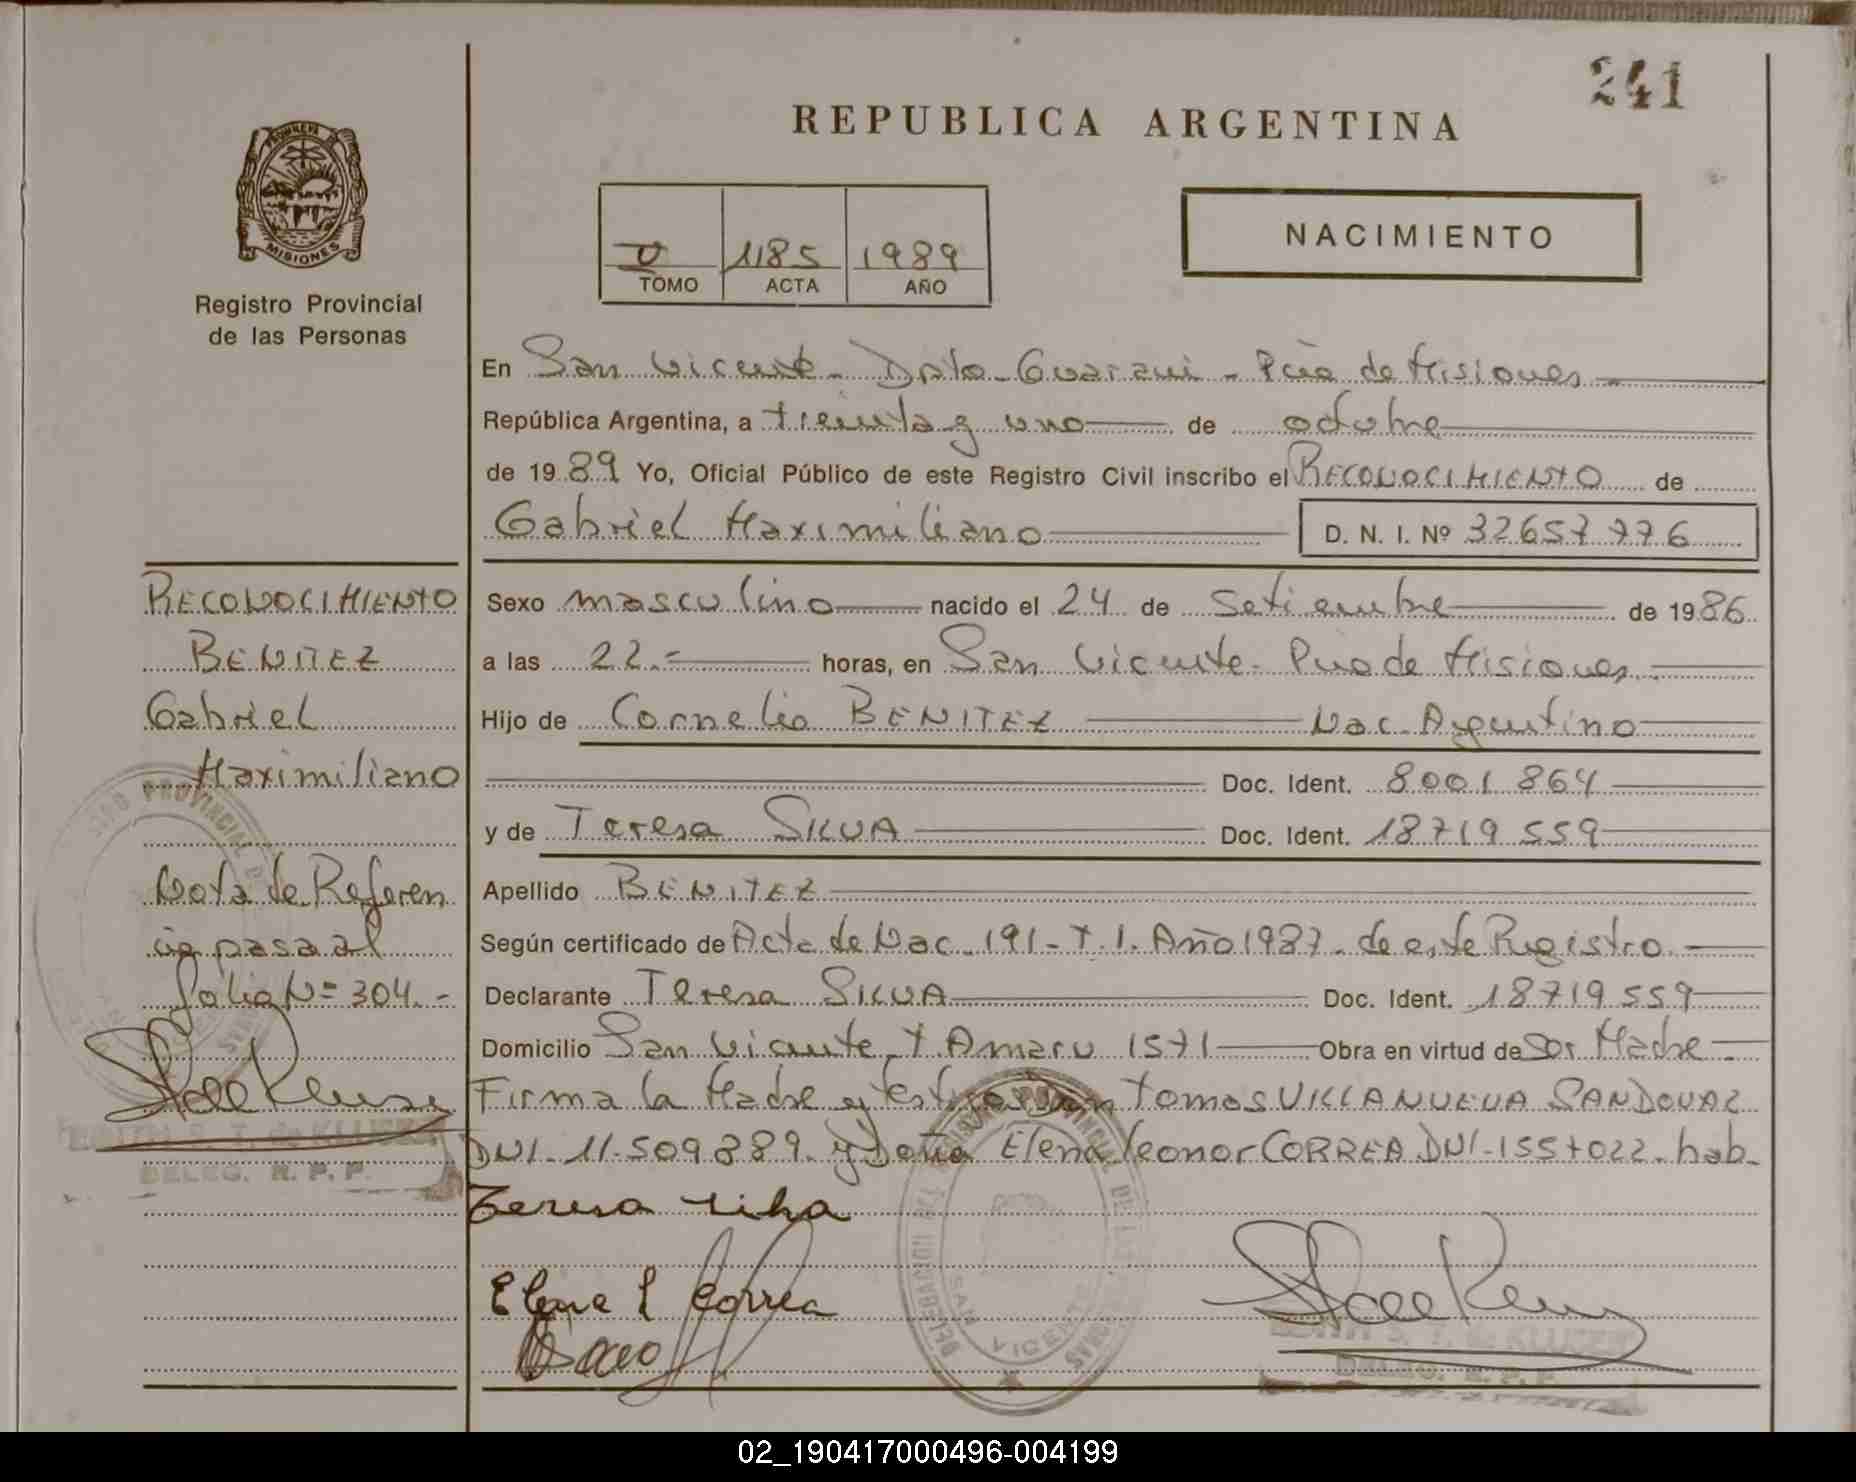 241
REPUBLICA ARGENTINA
PROVINCIA
MISIONES
Registro Provincial
de las Personas
1185 1989
TOMO ACTA AÑO
NACIMIENTO
En San Vicente - Dpto - Guarani - Pcia de Misiones
República Argentina, a treinta y uno de octubre
de 1989 Yo, Oficial Público de este Registro Civil inscribo el RECONOCIMIENTO de
Gabriel Maximiliano D. N. I. Nº 32657776
Sexo masculino nacido el 24 de Setiembre de 1986
a las 22.- horas, en San Vicente - Pcia de Misiones
Hijo de Cornelio BENITEZ Nac. Argentino
Doc. Ident. 8001864
y de Teresa SILVA Doc. Ident. 18719559
Apellido BENITEZ
Según certificado de Acta de Nac. 191 - T. I. Año 1987 - de este Registro
Declarante Teresa SILVA Doc. Ident. 18719559
Domicilio San Vicente, T Amaru 1571 Obra en virtud de Ser Madre -
Firma la Madre y testigos Don Tomas VILLANUEVA SANDOVAL
DNI - 11.509.889 - y Doña Elena Leonor CORREA DNI - 1557022 - hab.
Teresa silva
Elena L Correa
RECONOCIMIENTO
BENITEZ
Gabriel
Maximiliano
Nota de Referen
cia pasa al
folio Nº 304.-
EDITH S. T. de KLUKER
DELEG. R. P. P.
SAN VICENTE
EDITH S. T. de KLUKER
DELEG. R. P. P.
02_190417000496-004199